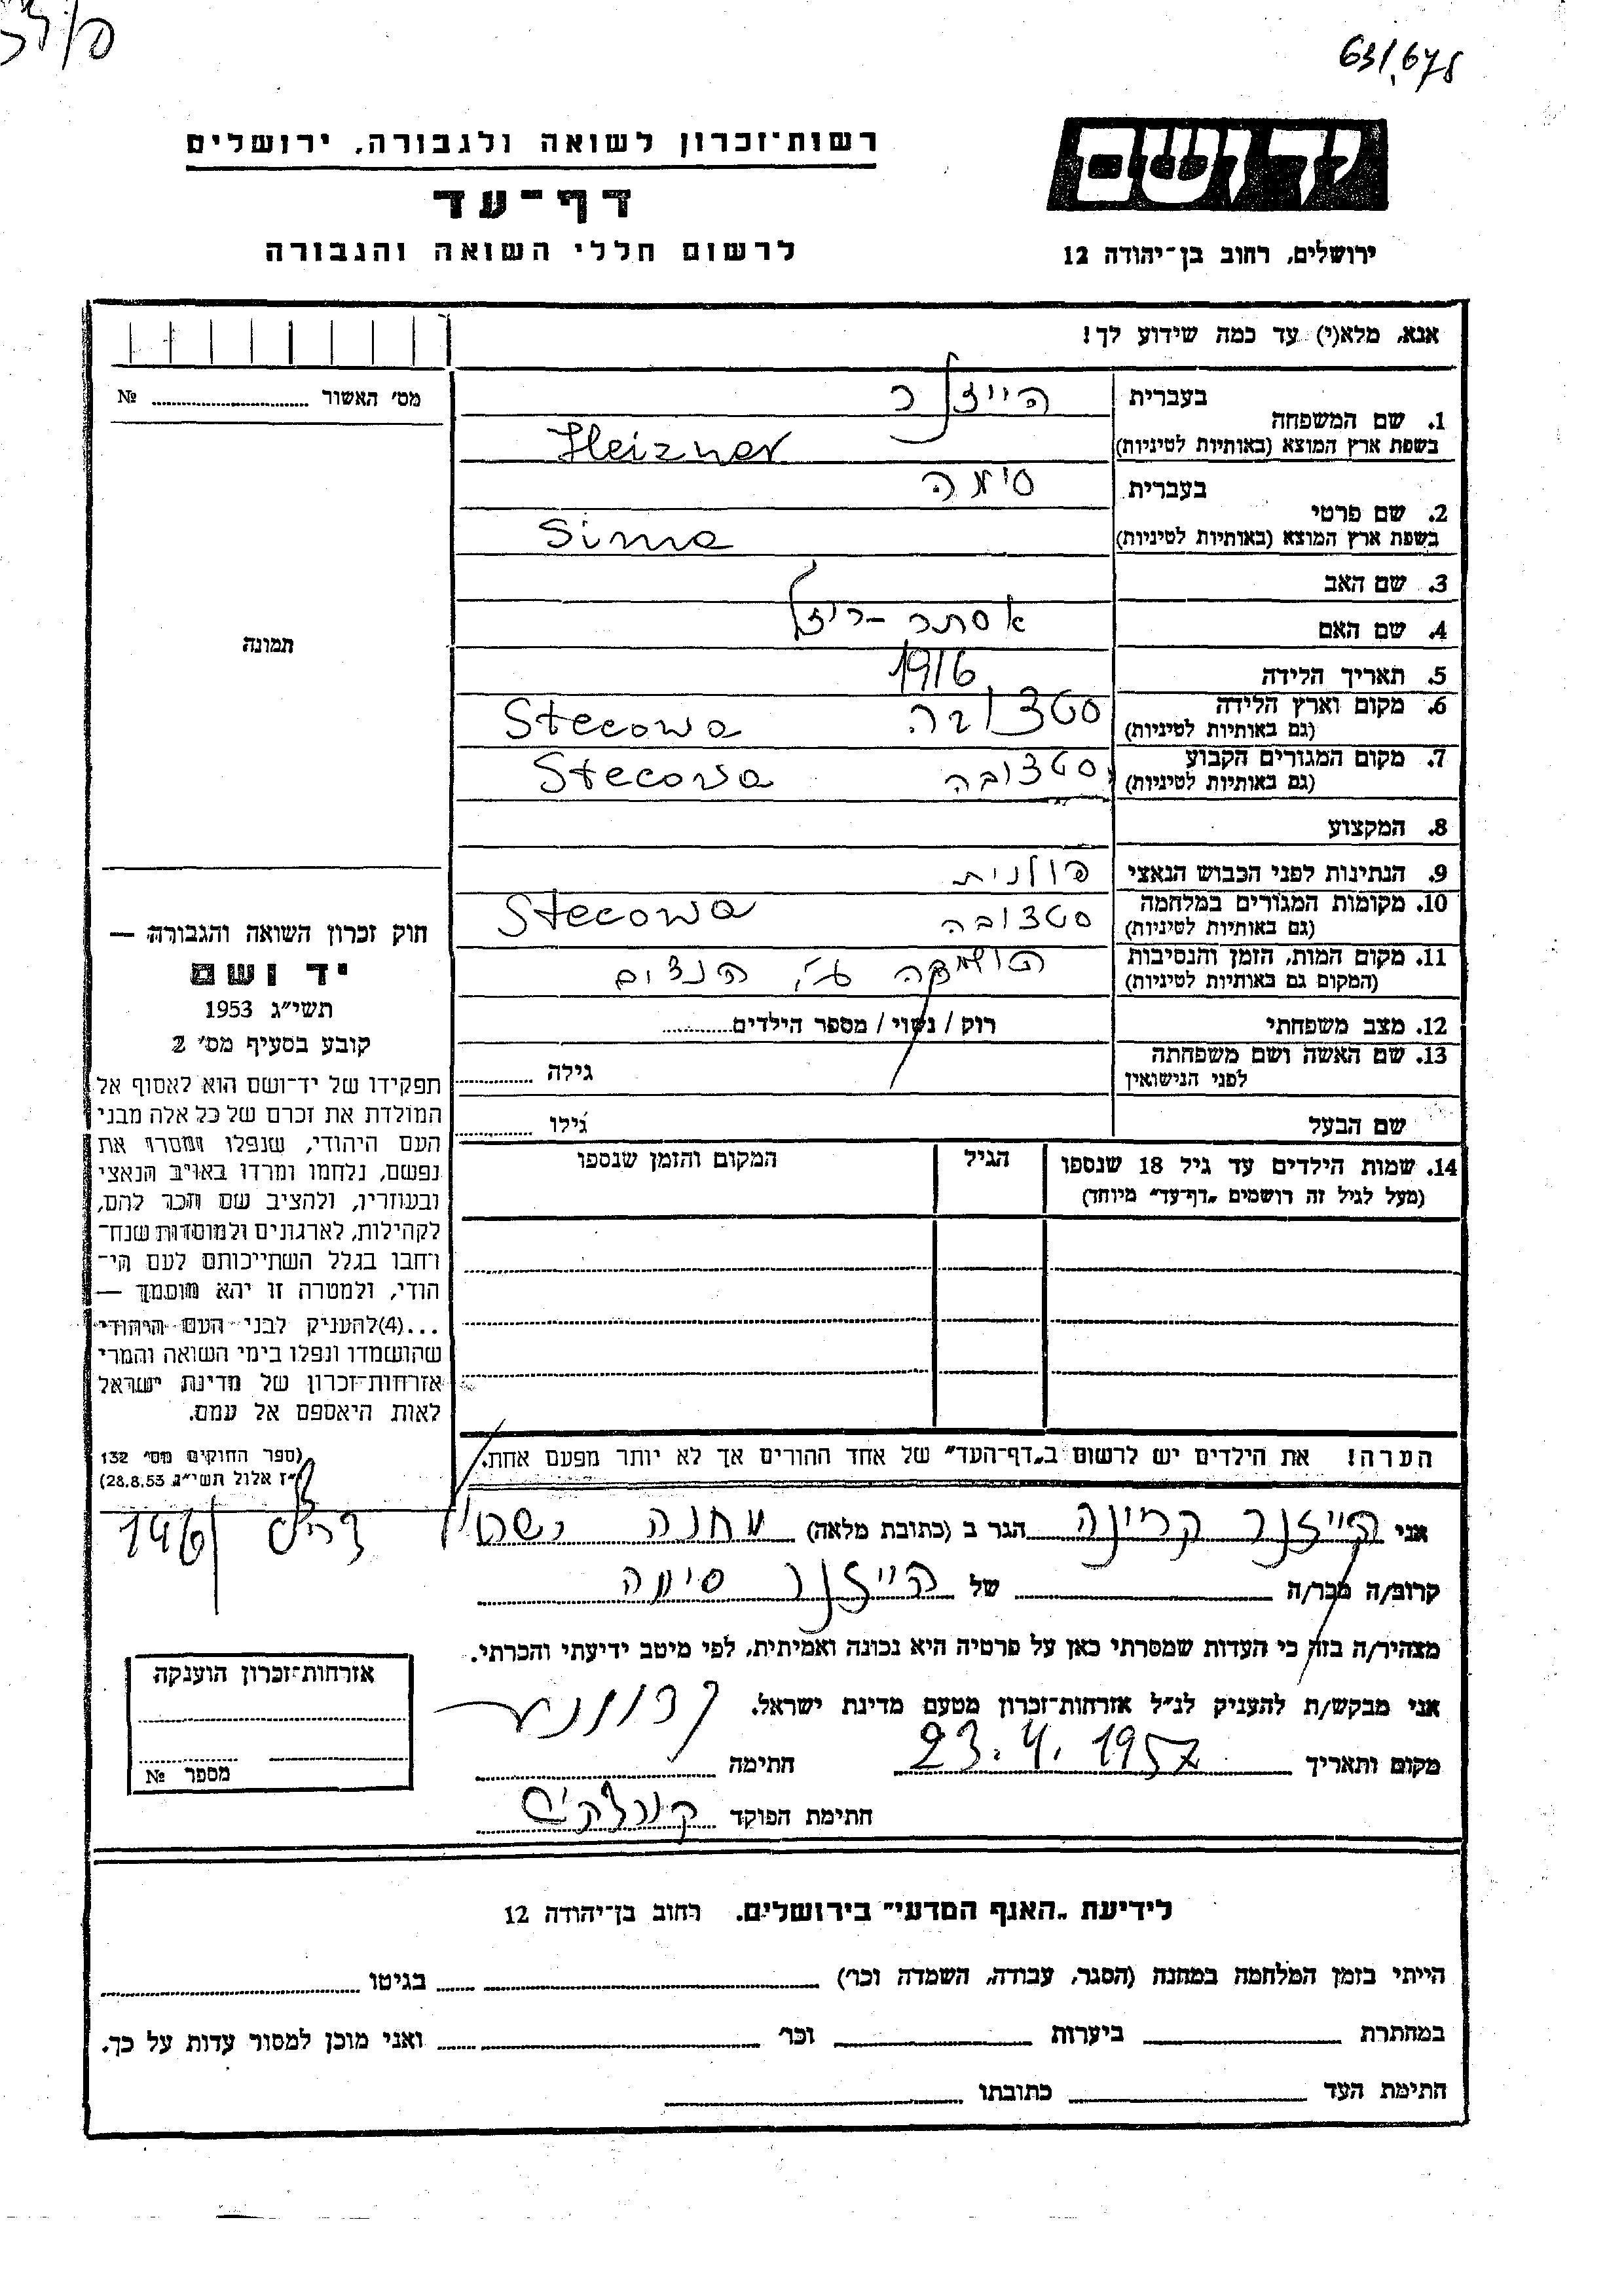 631/678
יד ושם
רשות־זכרון לשואה ולגבורה, ירושלים
דף־עד
לרשום חללי השואה והגבורה
ירושלים, רחוב בן־יהודה 12
אנא, מלא(י) עד כמה שידוע לך!
מס׳ האשור № ........
1. שם המשפחה
בעברית
הייזנר
בשפת ארץ המוצא (באותיות לטיניות)
Heizner
2. שם פרטי
בעברית
סימה
בשפת ארץ המוצא (באותיות לטיניות)
Sima
3. שם האב
4. שם האם אסתר-רייזל
5. תאריך הלידה 1916
6. מקום וארץ הלידה
(גם באותיות לטיניות)
סטצובה Stecowa
7. מקום המגורים הקבוע
(גם באותיות לטיניות)
סטצובה Stecowa
8. המקצוע
9. הנתינות לפני הכבוש הנאצי פולנית
10. מקומות המגורים במלחמה
(גם באותיות לטיניות)
סטצובה Stecowa
11. מקום המות, הזמן והנסיבות
(המקום גם באותיות לטיניות)
ע״י הנצים
12. מצב משפחתי רוק / נשוי / מספר הילדים........
13. שם האשה ושם משפחתה
לפני הנישואין
גילה ........
שם הבעל גילו ........
14. שמות הילדים עד גיל 18 שנספו
(מעל לגיל זה רושמים „דף־עד״ מיוחד)
הגיל
המקום והזמן שנספו
הערה! את הילדים יש לרשום ב„דף־העד״ של אחד ההורים אך לא יותר מפעם אחת.
תמונה
חוק זכרון השואה והגבורה —
יד ושם
תשי״ג 1953
קובע בסעיף מס׳ 2
תפקידו של יד־ושם הוא לאסוף אל
המולדת את זכרם של כל אלה מבני
העם היהודי, שנפלו ומסרו את
נפשם, נלחמו ומרדו באויב הנאצי
ובעוזריו, ולהציב שם וזכר להם,
לקהילות, לארגונים ולמוסדות שנח־
רחבו בגלל השתייכותם לעם הי־
הודי, ולמטרה זו יהא מוסמך —
...(4)להעניק לבני העם היהודי
שהושמדו ונפלו בימי השואה והמרי
אזרחות־זכרון של מדינת ישראל
לאות היאספם אל עמם.
(ספר החוקים מס׳ 132
י״ז אלול תשי״ג 28.8.53)
אני הייזנר הגר ב (כתובת מלאה) מחנה
קרוב/ה מכר/ה ........ של הייזנר סימה
מצהיר/ה בזה כי העדות שמסרתי כאן על פרטיה היא נכונה ואמיתית, לפי מיטב ידיעתי והכרתי.
אני מבקש/ת להעניק לנ״ל אזרחות־זכרון מטעם מדינת ישראל.
מקום ותאריך 23.4.1957 חתימה
חתימת הפוקד
אזרחות־זכרון הוענקה
מספר №
לידיעת „האגף המדעי״ בירושלים, רחוב בן־יהודה 12
הייתי בזמן המלחמה במחנה (הסגר, עבודה, השמדה וכו׳) ........ בגיטו ........
במחתרת ........ ביערות ........ וכו׳ ........ ואני מוכן למסור עדות על כך.
חתימת העד ........ כתובתו ........